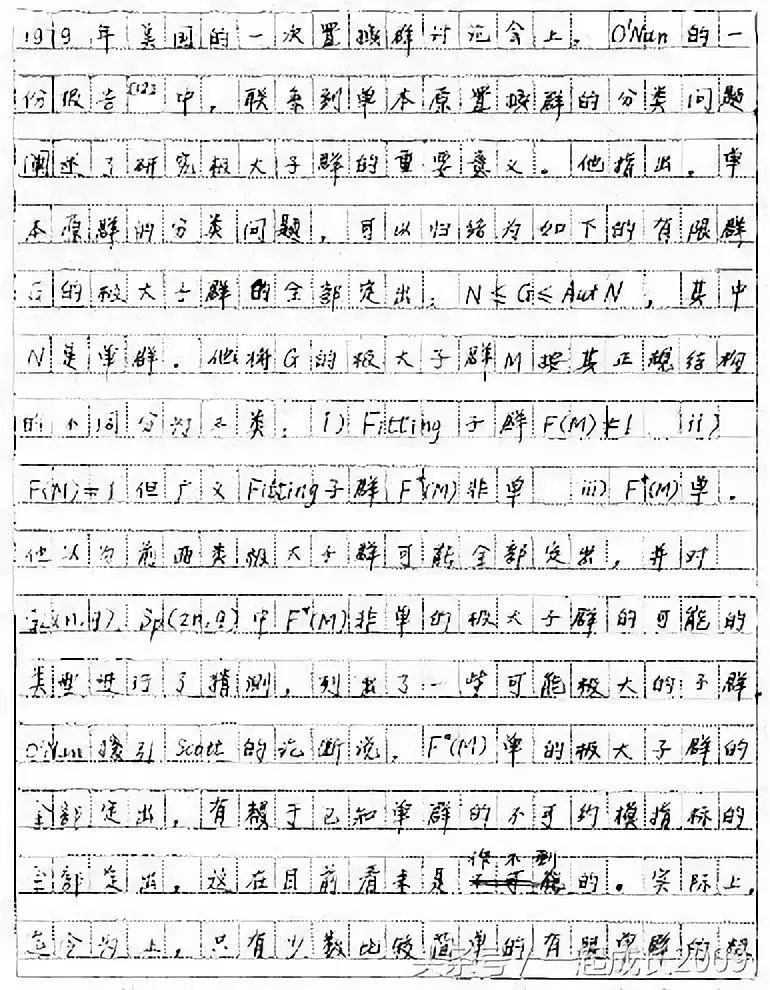 1979年美国的一次置换群讨论会上，O'Nan的一
份报告[12]中，联系到单本原置换群的分类问题
阐述了研究极大子群的重要意义。他指出，单
本原群的分类问题，可以归结为如下的有限群
G的极大子群的全部定出：N≤G≤AutN，其中
N是单群。他将G的极大子群M按其正规结构
的不同分为三类：i) Fitting子群F(M)≠1 ii)
F(M)=1但广义Fitting子群F*(M)非单 iii) F*(M)单。
他认为前两类极大子群可能全部定出，并对
(n,q)、Sp(2n,q)中F*(M)非单的极大子群的可能的
类型进行了猜测，列出了一些可能极大的子群。
O'Nan援引Scott的论断说，F*(M)单的极大子群的
全部定出，有赖于已知单群的不可约模指标的
全部定出，这在目前看来是作不到的。实际上，
至今为止，只有少数比较简单的有限单群的极
头条号/一起成长2009